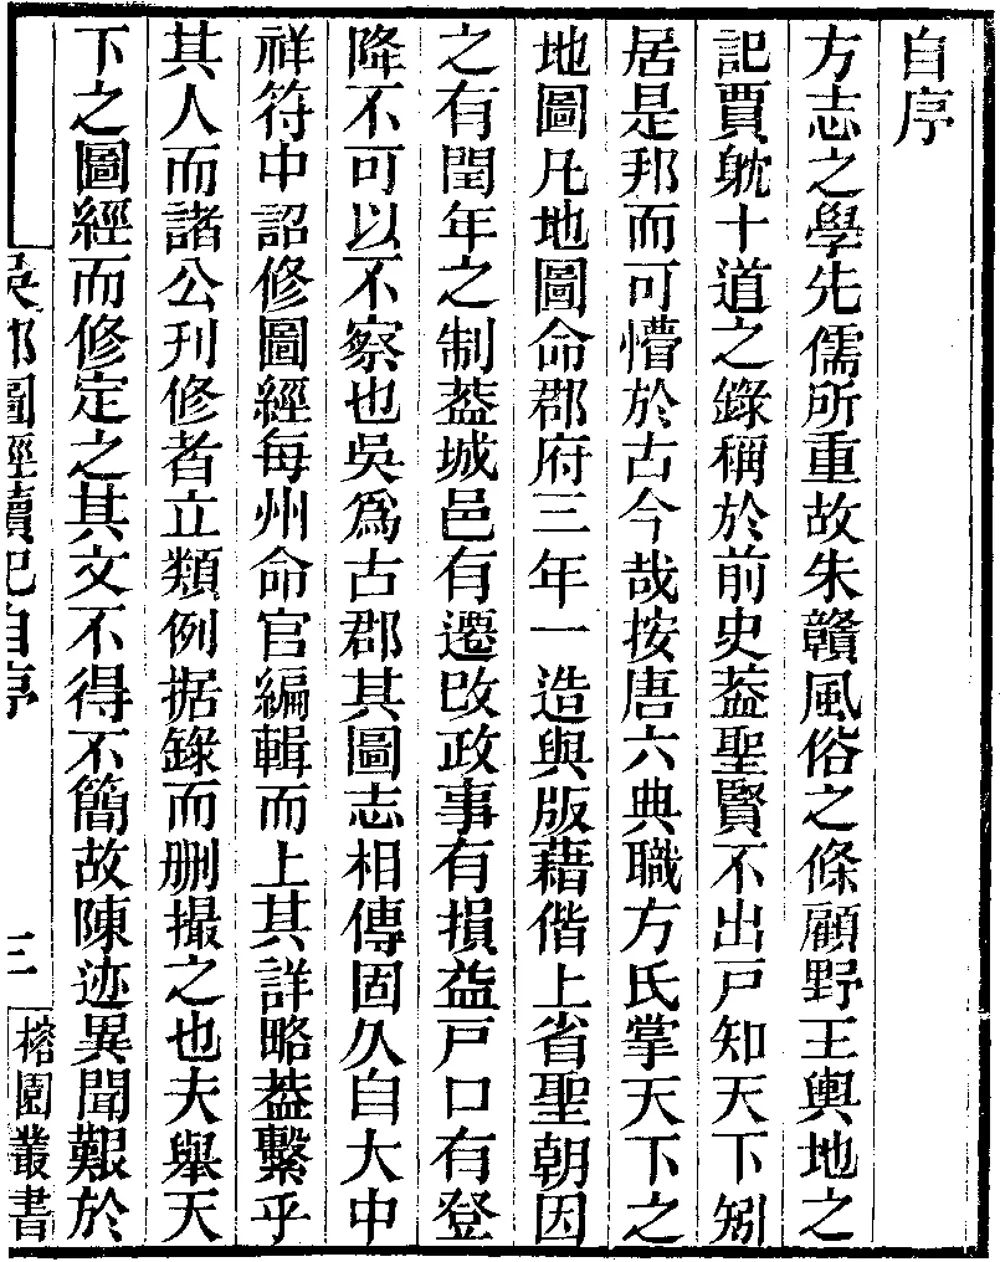 自序
方志之學先儒所重故朱贛風俗之條顧野王輿地之
記賈躭十道之錄稱於前史葢聖賢不出戸知天下矧
居是邦而可懵於古今哉按唐六典職方氏掌天下之
地圖凡地圖命郡府三年一造與版藉偕上省聖朝因
之有閏年之制葢城邑有遷改政事有損益戸口有登
降不可以不察也吳爲古郡其圖志相傳固久自大中
祥符中詔修圖經每州命官編輯而上其詳略葢繫乎
其人而諸公刊修者立類例据錄而删撮之也夫舉天
下之圖經而修定之其文不得不簡故陳迹異聞艱於
吳郡圖經續記自序
三
榕園叢書